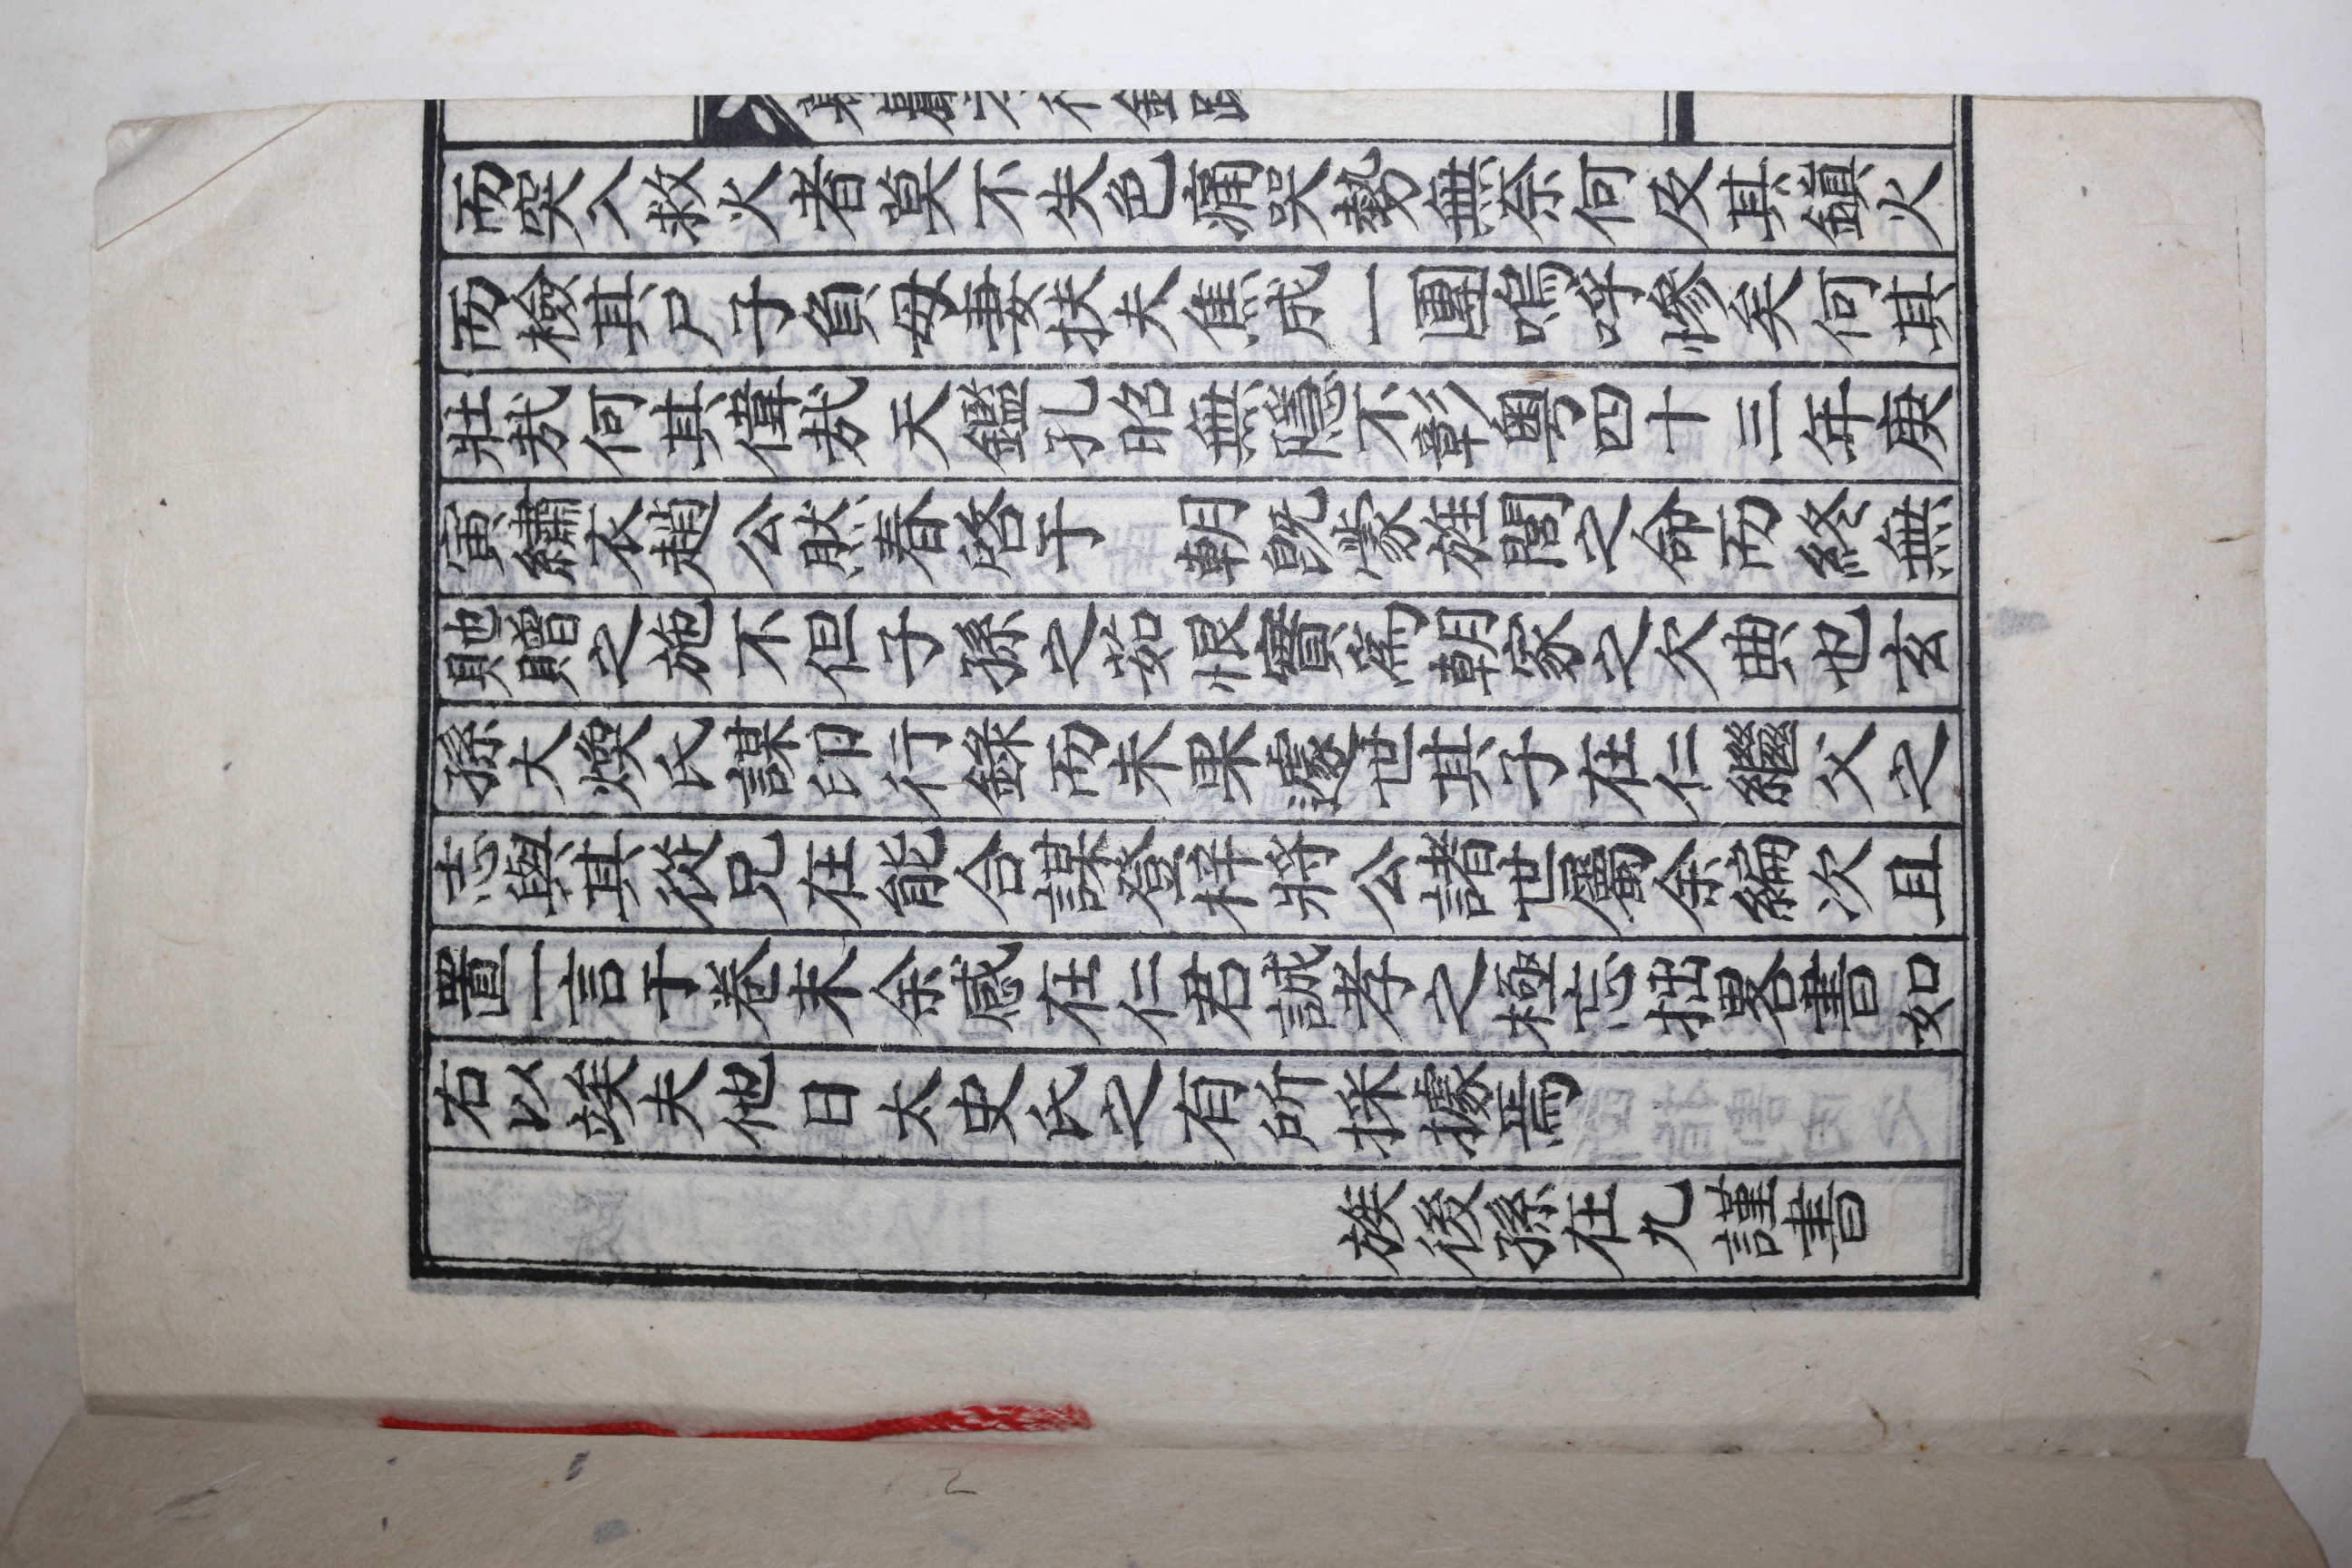 行錄跋
而突入救火者莫不失色痛哭勢無奈何及其鎭火
而檢其尸子負母妻扶夫焦成一團嗚呼慘矣何其
壯㦲何其偉㦲天鑑孔昭無隱不彰粤四十三年庚
寅繡衣趙公然春啓于 朝旣蒙旌閭之命而終無
貤贈之施不但子孫之茹恨實爲朝家之欠典也玄
孫大煥氏謀印行錄而未果遽世其子在仁繼父之
志與其從兄在能合謀登梓將公諸世屬余編次且
置一言于卷末余感在仁君誠孝之極忘拙畧書如
右以竢夫他日太史氏之有所採據焉
族後孫在九謹書